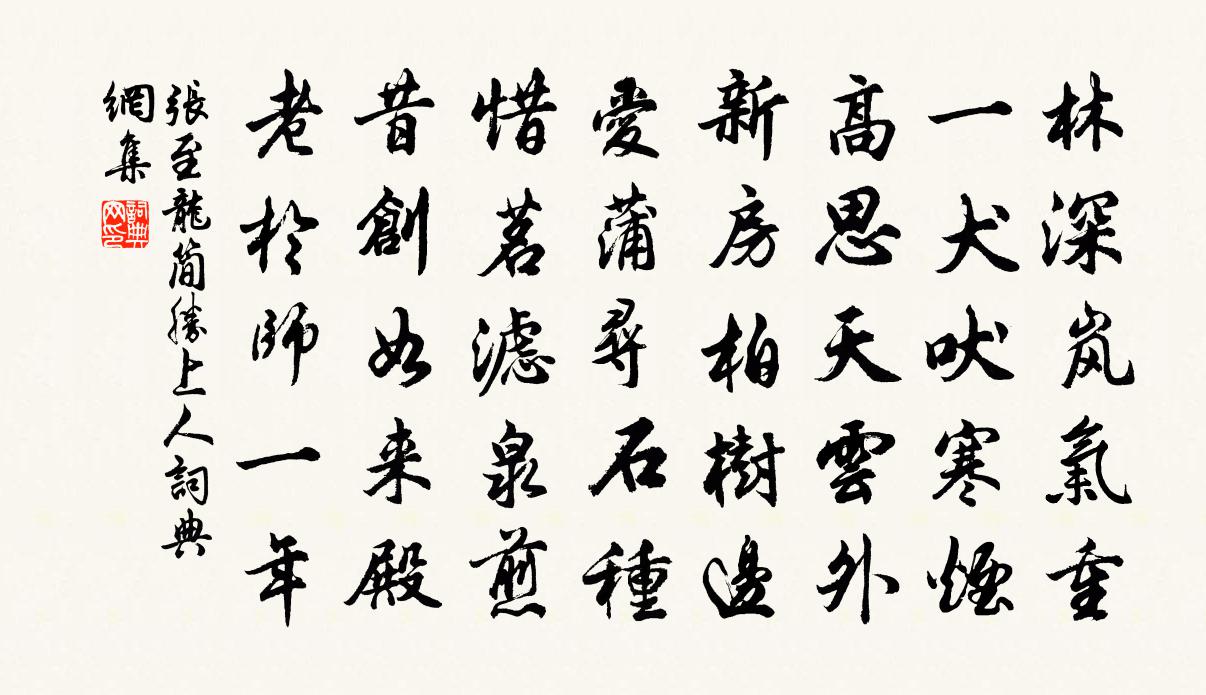 林深岚氣重
一犬吠寒煙
高思天雲外
新房柏樹邊
愛蒲尋石種
惜茗濾泉煎
昔創如来殿
老於師一年
張至龍簡勝上人詞典
網集
詞典
网印